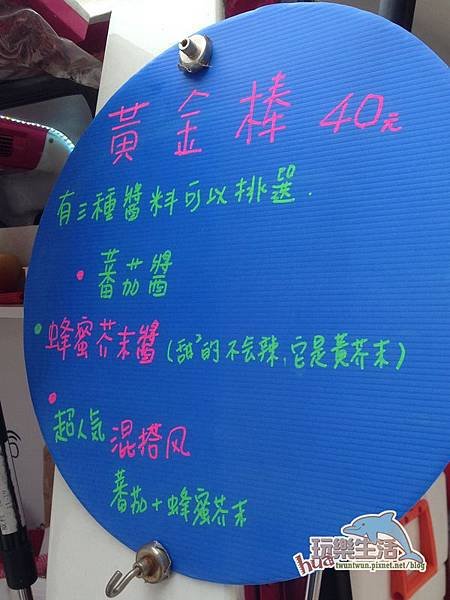 黃金棒 40元
有三種醬料可以挑選.
• 蕃茄醬
• 蜂蜜芥末醬(甜²的不会辣,它是黃芥末)
• 超人氣 混搭风
蕃茄+蜂蜜芥末
玩樂生活
hua
twuntwun.pixnet.net/blog